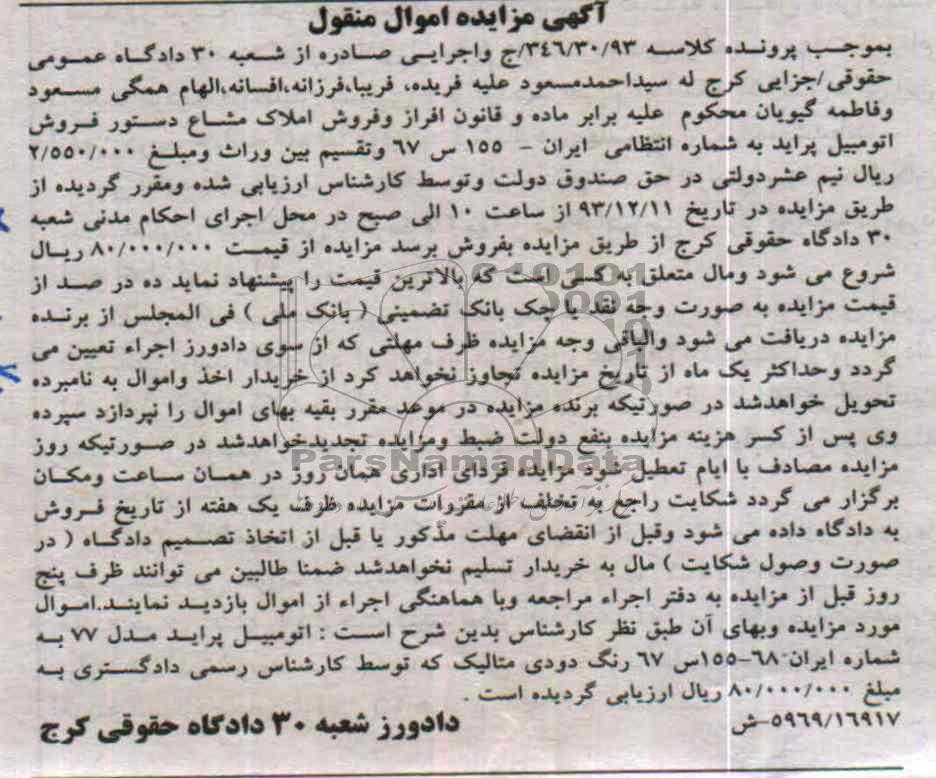 آگهی مزایده اموال منقول
بموجب پرونده کلاسه ۳۴٦/۳۰/۹۳/ج واجرایی صادره از شعبه ۳۰ دادگاه عمومی
حقوقی/جزایی کرج له سیداحمدمسعود علیه فریده، فریبا،فرزانه،افسانه،الهام همگی مسعود
وفاطمه گیویان محکوم علیه برابر ماده و قانون افراز وفروش املاک مشاع دستور فروش
اتومبیل پراید به شماره انتظامی ایران – ۱۵۵ س ٦۷ وتقسیم بین وراث ومبلغ ۲/۵۵۰/۰۰۰
ریال نیم عشردولتی در حق صندوق دولت وتوسط کارشناس ارزیابی شده ومقرر گردیده از
طریق مزایده در تاریخ ۹۳/۱۲/۱۱ از ساعت ۱۰ الی صبح در محل اجرای احکام مدنی شعبه
۳۰ دادگاه حقوقی کرج از طریق مزایده بفروش برسد مزایده از قیمت ۸۰/۰۰۰/۰۰۰ ریال
شروع می شود ومال متعلق به کسی است که بالاترین قیمت را پیشنهاد نماید ده در صد از
قیمت مزایده به صورت وجه نقد یا چک بانک تضمینی ( بانک ملی ) فی المجلس از برنده
مزایده دریافت می شود والباقی وجه مزایده ظرف مهلتی که از سوی دادورز اجراء تعیین می
گردد وحداکثر یک ماه از تاریخ مزایده تجاوز نخواهد کرد از خریدار اخذ واموال به نامبرده
تحویل خواهدشد در صورتیکه برنده مزایده در موعد مقرر بقیه بهای اموال را نپردازد سپرده
وی پس از کسر هزینه مزایده بنفع دولت ضبط ومزایده تجدیدخواهدشد در صورتیکه روز
مزایده مصادف با ایام تعطیل شود مزایده فردای اداری همان روز در همان ساعت ومکان
برگزار می گردد شکایت راجع به تخلف از مقررات مزایده ظرف یک هفته از تاریخ فروش
به دادگاه داده می شود وقبل از انقضای مهلت مذکور یا قبل از اتخاذ تصمیم دادگاه ( در
صورت وصول شکایت ) مال به خریدار تسلیم نخواهدشد ضمنا طالبین می توانند ظرف پنج
روز قبل از مزایده به دفتر اجراء مراجعه وبا هماهنگی اجراء از اموال بازدید نمایند.اموال
مورد مزایده وبهای آن طبق نظر کارشناس بدین شرح است : اتومبیل پراید مدل ۷۷ به
شماره ایران-٦۸-۱۵۵س ٦۷ رنگ دودی متالیک که توسط کارشناس رسمی دادگستری به
مبلغ ۸۰/۰۰۰/۰۰۰ ریال ارزیابی گردیده است .
۵۹٦۹/۱٦۹۱۷-ش
دادورز شعبه ۳۰ دادگاه حقوقی کرج
ParsNamadData